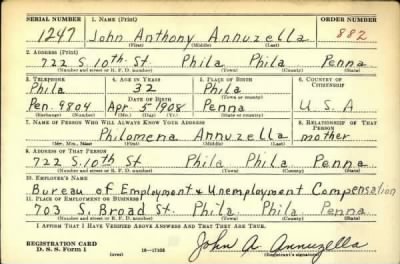 SERIAL NUMBER 1. NAME (Print) ORDER NUMBER
1247 John Anthony Annuzella 882
(First) (Middle) (Last)
2. ADDRESS (Print)
722 S. 10th St. Phila Phila Penna
(Number and street or R. F. D. number) (Town) (County) (State)
3. TELEPHONE 4. AGE IN YEARS 5. PLACE OF BIRTH 6. COUNTRY OF CITIZENSHIP
Phila 32 Phila
DATE OF BIRTH (Town or county)
Pen. 9804 Apr. 5 1908 Penna U S A
(Exchange) (Number) (Mo.) (Day) (Yr.) (State or country)
7. NAME OF PERSON WHO WILL ALWAYS KNOW YOUR ADDRESS 8. RELATIONSHIP OF THAT PERSON
Philomena Annuzella mother
(Mr., Mrs., Miss) (First) (Middle) (Last)
9. ADDRESS OF THAT PERSON
722 S. 10th St Phila Phila Penna
(Number and street or R. F. D. number) (Town) (County) (State)
10. EMPLOYER'S NAME
Bureau of Employment & Unemployment Compensation
11. PLACE OF EMPLOYMENT OR BUSINESS
703 S. Broad St. Phila Phila Penna
(Number and street or R. F. D. number) (Town) (County) (State)
I AFFIRM THAT I HAVE VERIFIED ABOVE ANSWERS AND THAT THEY ARE TRUE.
REGISTRATION CARD
D. S. S. Form 1 (over) John A. Annuzella
(Registrant's signature)